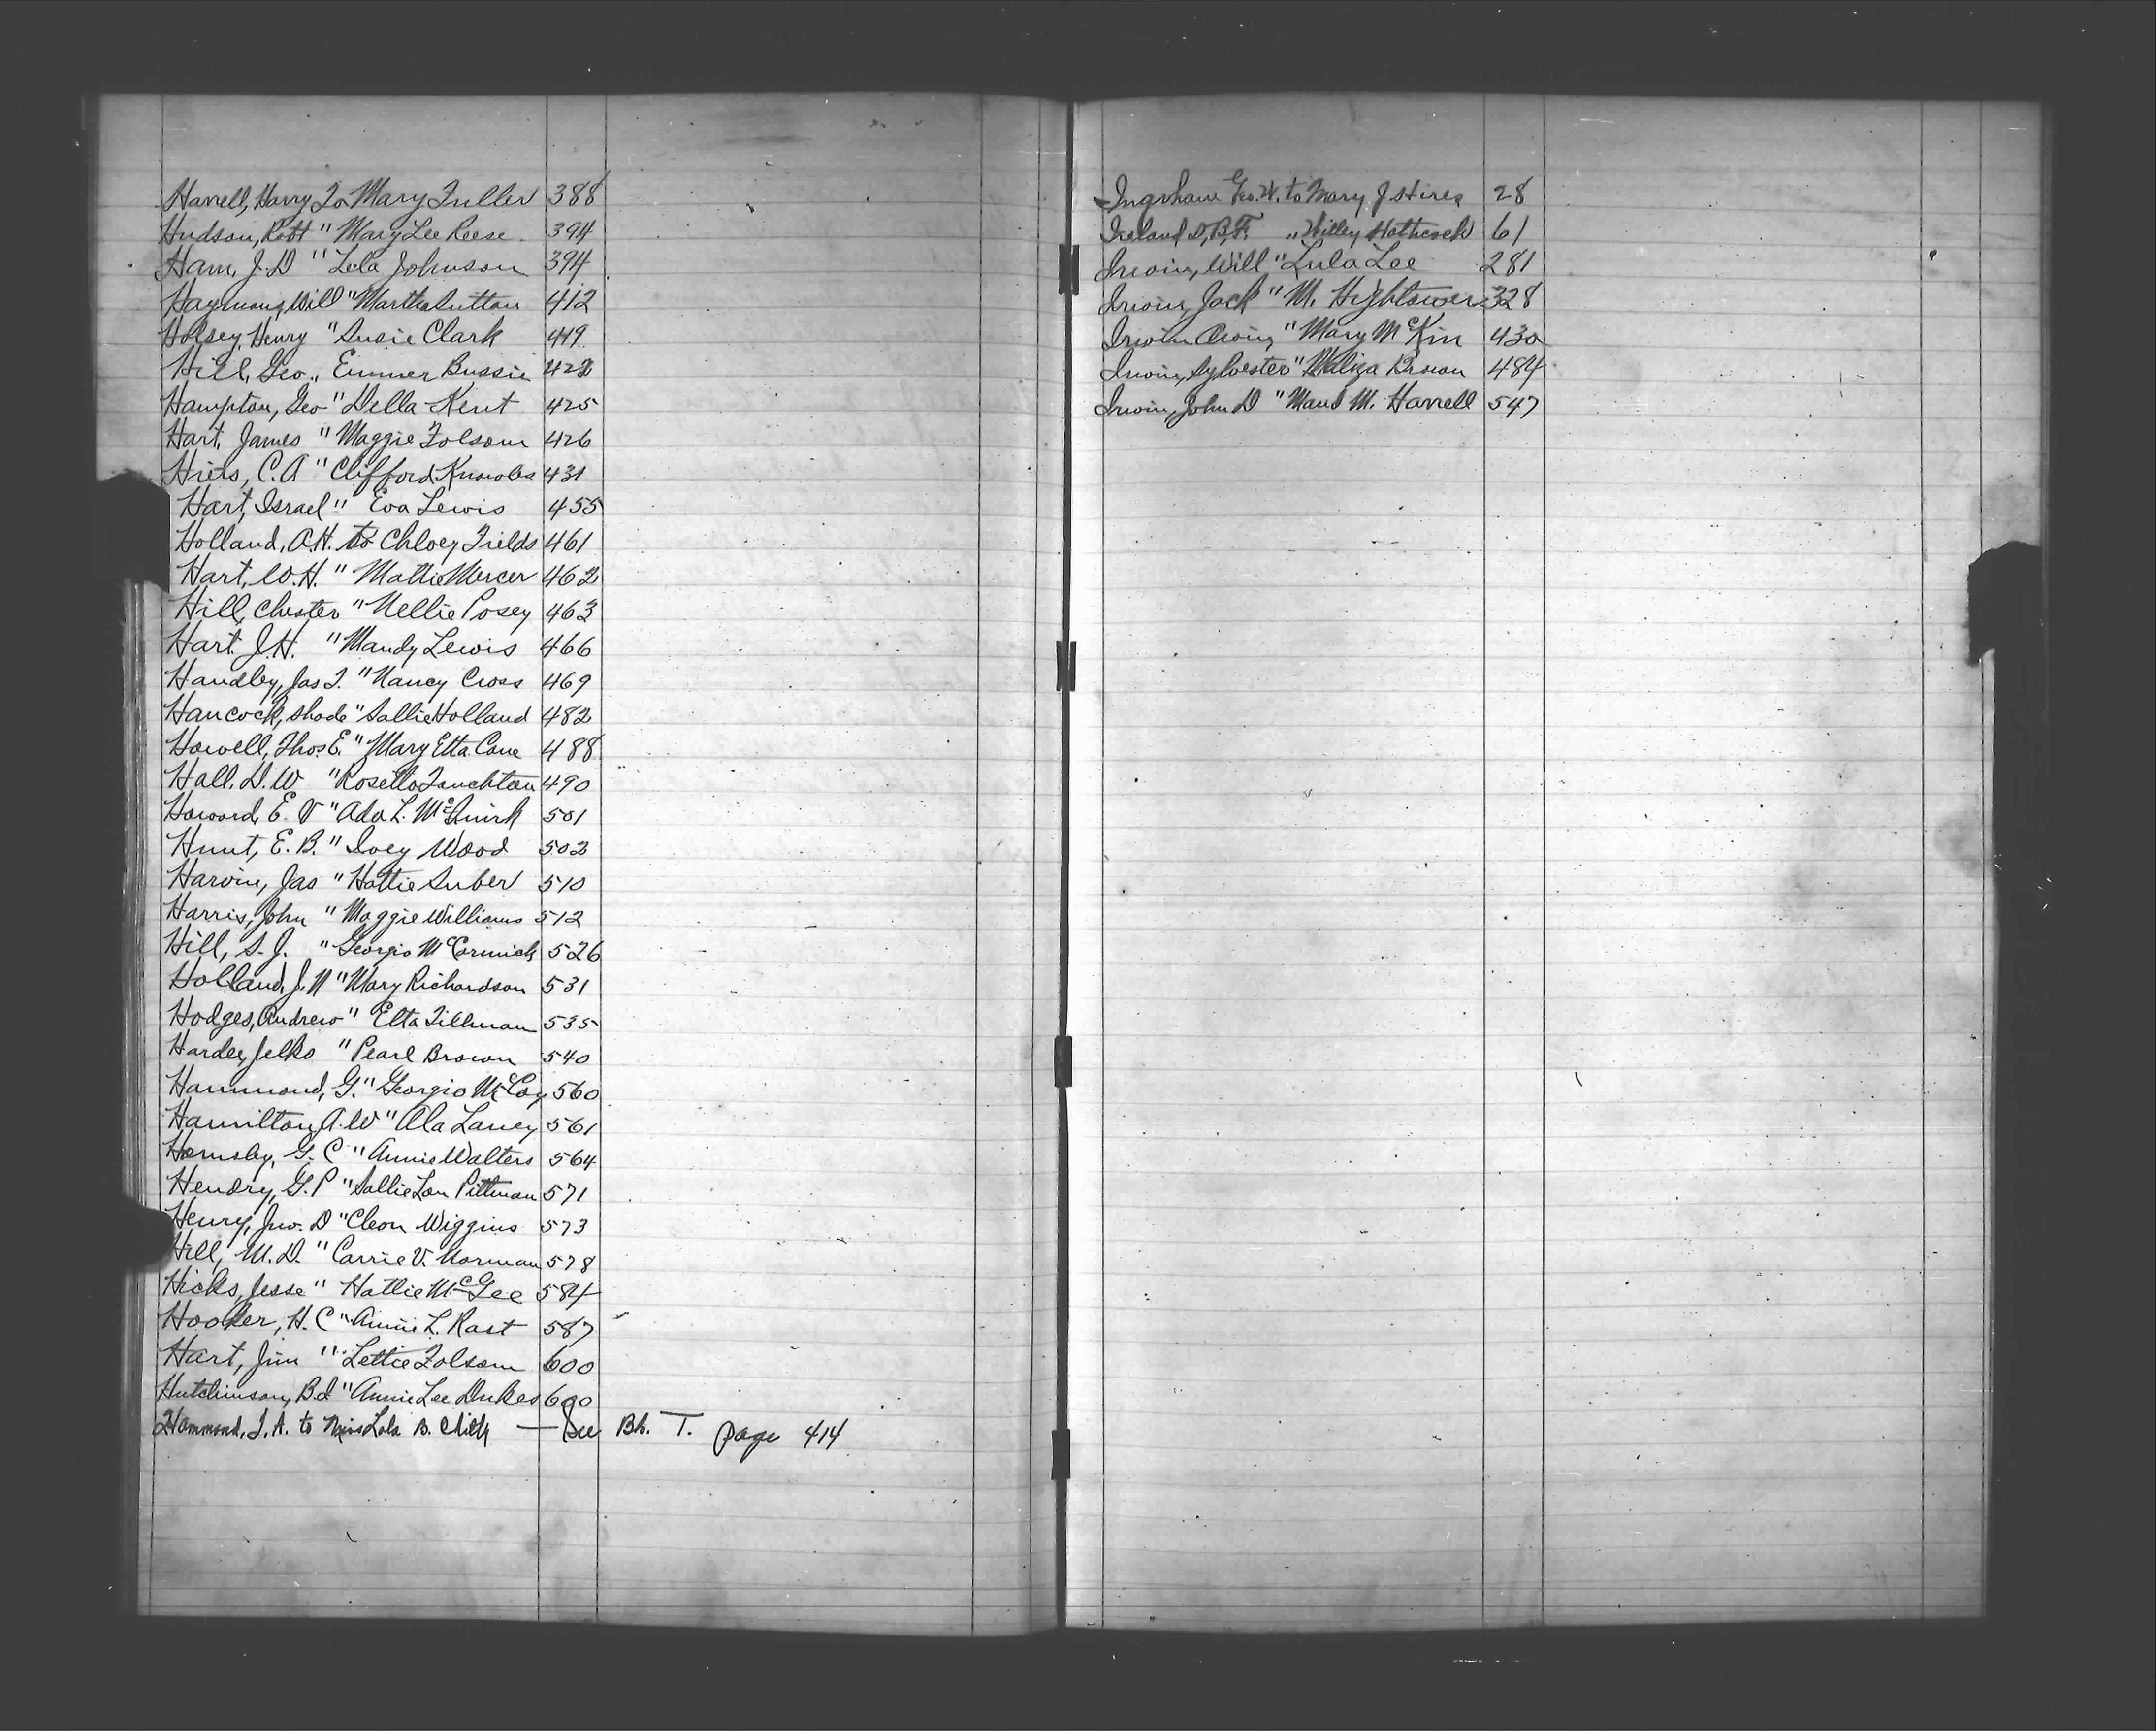 Harrell, Harry To Mary Fuller 388
Hudson, Robt " Mary Lee Reese. 394
Ham, J. D " Lela Johnson 394
Haymans, Will " Martha Sutton 412
Holsey, Henry " Susie Clark 419
Hill, Geo. „ Emmer Bussie 422
Hampton, Geo " Della Kent 425
Hart, James " Maggie Folsom 426
Hiers, C. A " Clifford Knowles 431
Hart, Israel " Eva Lewis 455
Holland, A. H. to Chloey Fields 461
Hart, W. H. " Mattie Mercer 462
Hill, Chester " Nellie Posey 463
Hart. J. H. " Mandy Lewis 466
Handley, Jas T. " Nancy Cross 469
Hancock, Shade " Sallie Holland 482
Howell, Thos E. " Mary Etta Cone 488
Hall, D. W " Rosetta Touchton 490
Howard, E. V " Ada L. McQuirk 501
Hunt, E. B. " Ivey Wood 502
Harvin, Jas " Hattie Suber 510
Harris, John " Maggie Williams 512
Hill, S. J. " Georgia McCormick 526
Holland, J. N " Mary Richardson 531
Hodges, Andrew " Etta Tillman 535
Hardee, Jelks " Pearl Brown 540
Hammond, G. " Georgia McCoy 560
Hamilton, A. W " Ola Laney 561
Hornsby, G. C " Annie Walters 564
Hendry, G. P " Sallie Lou Pittman 571
Henry, Jno. D " Cleon Wiggins 573
Hill, M. D. " Carrie V. Norman 578
Hicks, Jesse " Hattie McGee 584
Hooker, H. C " Annie L. Rast 587
Hart, Jim " Lettie Folsom 600
Hutchinson, Bd " Annie Lee Dukes 600
Hammond, T. A. to Miss Lola B. — See Bk. T. page 414
Ingrham Geo. W. to Mary J Hires 28
Ireland D, B, F. „ Willey Hathcock 61
Irwin, Will " Lula Lee 281
Irwin, Jack " M. Hightower 328
Irwin " Mary McKin 430
Irwin, Sylvester " Maliza Brown 484
Irwin, John D " Maud M. Harrell 547